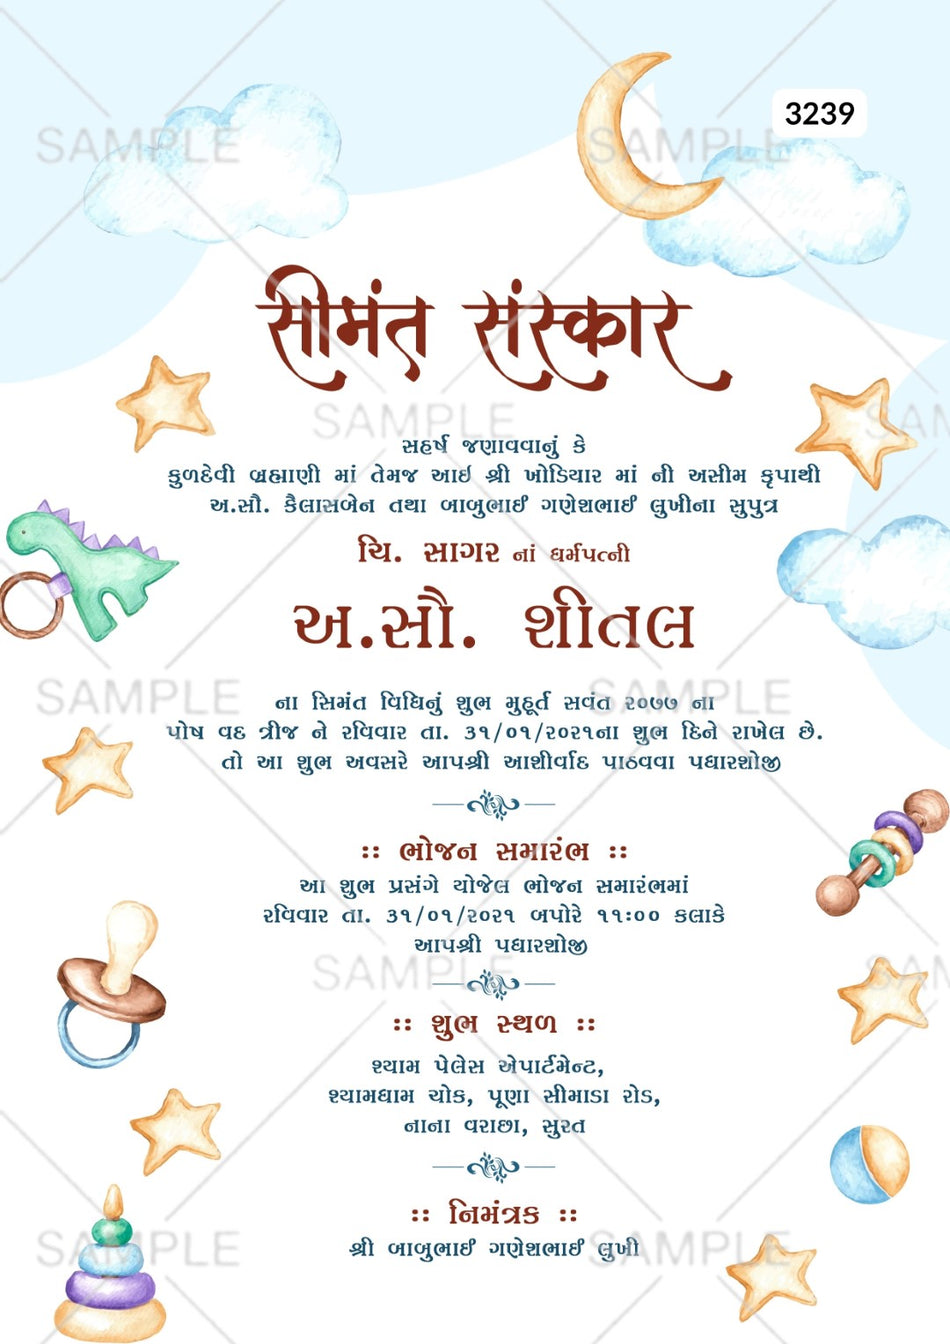 SAMPLE SAMPLE
3239
સીમંત સંસ્કાર
SAMPLE SAM
સહર્ષ જણાવવાનું કે
કુળદેવી બ્રહ્માણી માં તેમજ આઇ શ્રી ખોડિયાર માં ની અસીમ કૃપાથી
અ.સૌ. કૈલાસબેન તથા બાબુભાઈ ગણેશભાઈ લુખીના સુપુત્ર
ચિ. સાગર નાં ધર્મપત્ની
અ.સૌ. શીતલ
SAMPLE SAMPLE
ના સિમંત વિધિનું શુભ મુહૂર્ત સવંત ૨૦૭૭ ના
પોષ વદ ત્રીજ ને રવિવાર તા. ૩૧/૦૧/૨૦૨૧ના શુભ દિને રાખેલ છે.
તો આ શુભ અવસરે આપશ્રી આશીર્વાદ પાઠવવા પધારશોજી
:: ભોજન સમારંભ ::
આ શુભ પ્રસંગે યોજેલ ભોજન સમારંભમાં
રવિવાર તા. ૩૧/૦૧/૨૦૨૧ બપોરે ૧૧:૦૦ કલાકે
આપશ્રી પધારશોજી
SAMPLE SAM
:: શુભ સ્થળ ::
શ્યામ પેલેસ એપાર્ટમેન્ટ,
શ્યામધામ ચોક, પૂણા સીમાડા રોડ,
નાના વરાછા, સુરત
:: નિમંત્રક ::
શ્રી બાબુભાઈ ગણેશભાઈ લુખી
SAMPLE SAMPLE